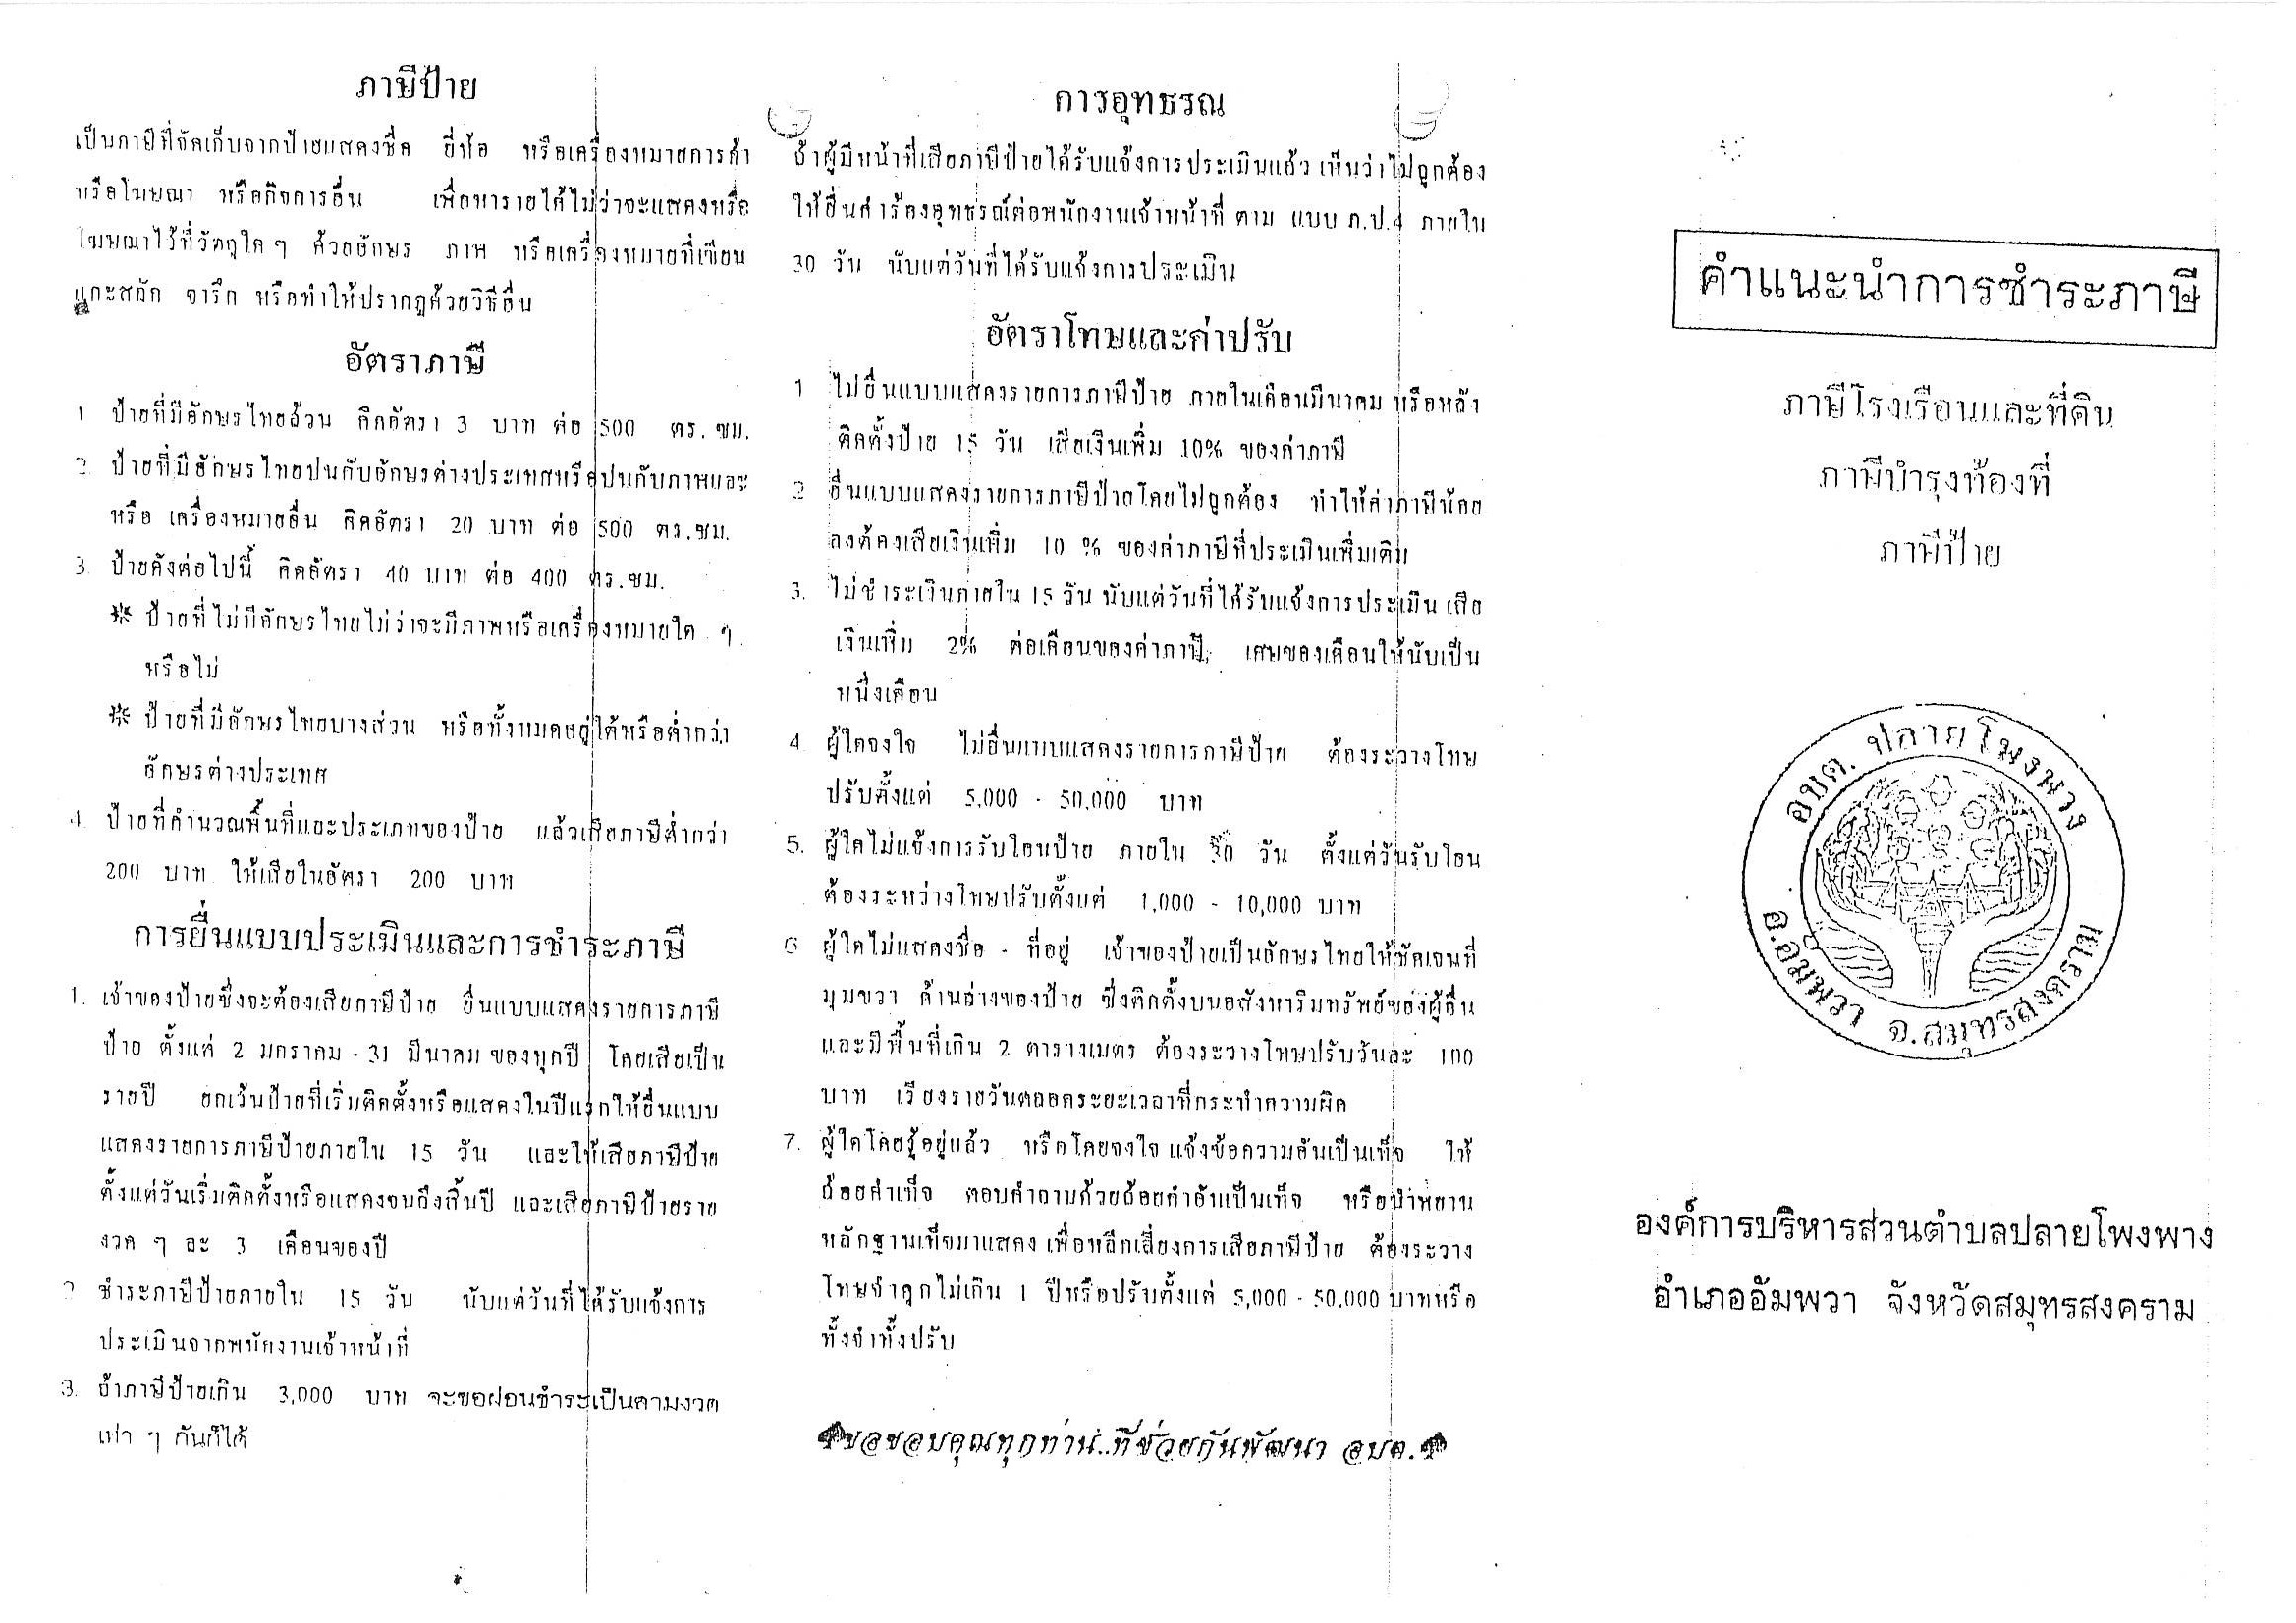 ภาษีป้าย
เป็นภาษีที่จัดเก็บจากป้ายแสดงชื่อ ยี่ห้อ หรือเครื่องหมายการค้า
หรือโฆษณา หรือกิจการอื่น เพื่อหารายได้ไม่ว่าจะแสดงหรือ
โฆษณาไว้ที่วัตถุใด ๆ ด้วยอักษร ภาพ หรือเครื่องหมายที่เขียน
แกะสลัก จารึก หรือทำให้ปรากฏด้วยวิธีอื่น
อัตราภาษี
1 ป้ายที่มีอักษรไทยล้วน คิดอัตรา 3 บาท ต่อ 500 ตร.ซม.
2. ป้ายที่มีอักษรไทยปนกับอักษรต่างประเทศหรือปนกับภาพและ
หรือ เครื่องหมายอื่น คิดอัตรา 20 บาท ต่อ 500 ตร.ซม.
3. ป้ายดังต่อไปนี้ คิดอัตรา 40 บาท ต่อ 400 ตร.ซม.
* ป้ายที่ไม่มีอักษรไทยไม่ว่าจะมีภาพหรือเครื่องหมายใด ๆ
หรือไม่
* ป้ายที่มีอักษรไทยบางส่วน หรือทั้งหมดอยู่ใต้หรือต่ำกว่า
อักษรต่างประเทศ
4. ป้ายที่คำนวณพื้นที่และประเภทของป้าย แล้วเสียภาษีต่ำกว่า
200 บาท ให้เสียในอัตรา 200 บาท
การยื่นแบบประเมินและการชำระภาษี
1. เจ้าของป้ายซึ่งจะต้องเสียภาษีป้าย ยื่นแบบแสดงรายการภาษี
ป้าย ตั้งแต่ 2 มกราคม - 31 มีนาคม ของทุกปี โดยเสียเป็น
รายปี ยกเว้นป้ายที่เริ่มติดตั้งหรือแสดงในปีแรกให้ยื่นแบบ
แสดงรายการภาษีป้ายภายใน 15 วัน และให้เสียภาษีป้าย
ตั้งแต่วันเริ่มติดตั้งหรือแสดงจนถึงสิ้นปี และเสียภาษีป้ายราย
งวด ๆ ละ 3 เดือนของปี
2 ชำระภาษีป้ายภายใน 15 วัน นับแต่วันที่ได้รับแจ้งการ
ประเมินจากพนักงานเจ้าหน้าที่
3. ถ้าภาษีป้ายเกิน 3,000 บาท จะขอผ่อนชำระเป็นสามงวด
เท่า ๆ กันก็ได้
การอุทธรณ
ถ้าผู้มีหน้าที่เสียภาษีป้ายได้รับแจ้งการประเมินแล้ว เห็นว่าไม่ถูกต้อง
ให้ยื่นคำร้องอุทธรณ์ต่อพนักงานเจ้าหน้าที่ ตาม แบบ ภ.ป.4 ภายใน
30 วัน นับแต่วันที่ได้รับแจ้งการประเมิน
อัตราโทษและค่าปรับ
1 ไม่ยื่นแบบแสดงรายการภาษีป้าย ภายในเดือนมีนาคม หรือหลัง
ติดตั้งป้าย 15 วัน เสียเงินเพิ่ม 10% ของค่าภาษี
2 ยื่นแบบแสดงรายการภาษีป้ายโดยไม่ถูกต้อง ทำให้ค่าภาษีน้อย
ลงต้องเสียเงินเพิ่ม 10 % ของค่าภาษีที่ประเมินเพิ่มเติม
3. ไม่ชำระเงินภายใน 15 วัน นับแต่วันที่ได้รับแจ้งการประเมิน เสีย
เงินเพิ่ม 2% ต่อเดือนของค่าภาษี, เศษของเดือนให้นับเป็น
หนึ่งเดือน
4. ผู้ใดจงใจ ไม่ยื่นแบบแสดงรายการภาษีป้าย ต้องระวางโทษ
ปรับตั้งแต่ 5,000 - 50,000 บาท
5. ผู้ใดไม่แจ้งการรับโอนป้าย ภายใน 30 วัน ตั้งแต่วันรับโอน
ต้องระหว่างโทษปรับตั้งแต่ 1,000 - 10,000 บาท
6 ผู้ใดไม่แสดงชื่อ - ที่อยู่ เจ้าของป้ายเป็นอักษรไทยให้ชัดเจนที่
มุมขวา ด้านล่างของป้าย ซึ่งติดตั้งบนอสังหาริมทรัพย์ของผู้อื่น
และมีพื้นที่เกิน 2 ตารางเมตร ต้องระวางโทษปรับวันละ 100
บาท เรียงรายวันตลอดระยะเวลาที่กระทำความผิด
7. ผู้ใดโดยรู้อยู่แล้ว หรือโดยจงใจ แจ้งข้อความอันเป็นเท็จ ให้
ถ้อยคำเท็จ ตอบคำถามด้วยถ้อยคำอันเป็นเท็จ หรือนำพยาน
หลักฐานเท็จมาแสดง เพื่อหลีกเลี่ยงการเสียภาษีป้าย ต้องระวาง
โทษจำคุกไม่เกิน 1 ปีหรือปรับตั้งแต่ 5,000 - 50,000 บาทหรือ
ทั้งจำทั้งปรับ
ขอขอบคุณทุกท่าน..ที่ช่วยกันพัฒนา อบต.
คำแนะนำการชำระภาษี
ภาษีโรงเรือนและที่ดิน
ภาษีบำรุงท้องที่
ภาษีป้าย
อบต. ปลายโพงพาง
อ.อัมพวา จ.สมุทรสงคราม
องค์การบริหารส่วนตำบลปลายโพงพาง
อำเภออัมพวา จังหวัดสมุทรสงคราม